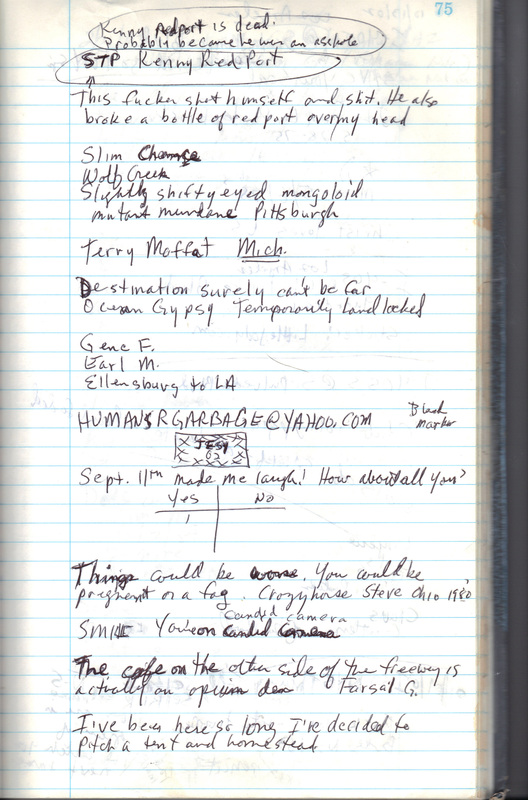 75
Kenny Redport is dead.
Probably because he was an asshole
STP Kenny Red Port
This fucker shot himself and shit. He also
broke a bottle of red port over my head
Slim Chance
Wolf Creek
Slightly shifty eyed mongoloid
mutant mundane Pittsburgh
Terry Moffat Mich.
Destination surely can't be far
Ocean Gypsy Temporarily Landlocked
Gene F.
Earl M.
Ellensburg to LA
HUMANSRGARBAGE@YAHOO.COM
Black
marker
Sept. 11th made me laugh! How about all you?
Yes No
1
Things could be worse. You could be
pregnant or a fag. Crazyhouse Steve Ohio 1980
candid camera
SMILE You're on candid camera
The cafe on the other side of the freeway is
actually an opium den Farsail G.
I've been here so long I've decided to
pitch a tent and homestead